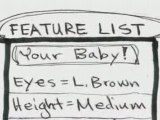 FEATURE LIST
(Your Baby!)
Eyes = L. Brown
Height = Medium